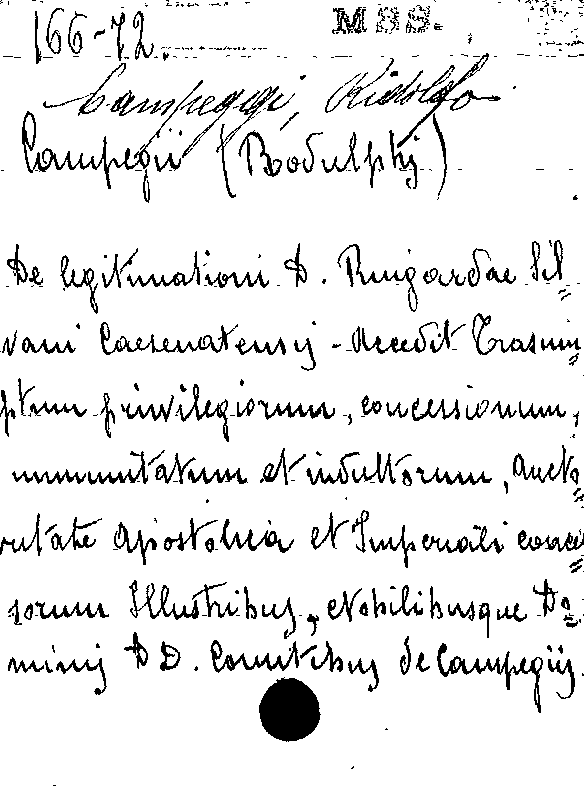 166-72. MSS.
Campeggi, Ridolfo
Campegii (Rodulphi)
De legitimationi D. Ringardae Sil=
vani Caesenatensis - Accedit Trasum=
ptum privilegiorum, concessionum,
immunitatum et indultorum, aucto=
ritate Apostolica et Imperiali conces=
sorum Illustribus, Nobilibusque Do=
minis D D. Comitibus de Campegiis.